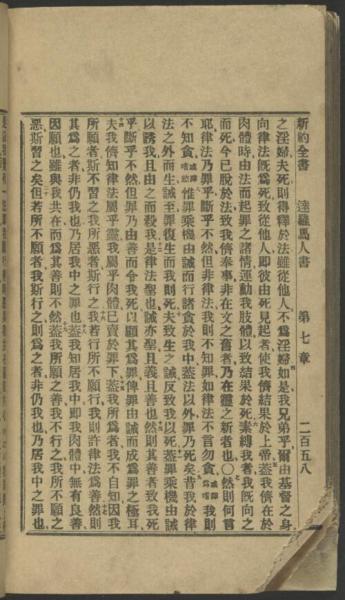 新約全書　達羅馬人書　第七章　二百五八
之淫婦夫死則得釋於法雖從他人不爲淫婦如是我兄弟乎爾由基督之身
向律法旣爲死致從他人卽彼由死見起者使我儕結果於上帝蓋我儕在於
肉體時由法而起罪之諸情運動我肢體以致結果於死素縛我者我旣向之
而死今已脫於法致我儕奉事非在文之舊者乃在靈之新者也〇然則何言
耶律法乃罪乎斷乎不然但非律法我則不知罪如律法不言勿貪我則
不知貪惟罪乘機由誡而行諸貪於我中蓋法以外罪乃死矣昔我於律
法之外而生誡至罪復生而我則死夫致生之誡反致我以死蓋罪乘機由誡
以誘我且由之而殺我是律法聖也誡亦聖且義且善也然則其善者致我死
乎斷乎不然但罪乃由善而令我死以顯其爲罪俾罪由誡而成爲罪之極耳
夫我儕知律法屬乎靈我屬乎肉體已賣於罪下蓋我所爲者我不自知因我
所願者斯不習之我所惡者斯行之我若行所不願行我則許律法爲善然則
其爲之者非仍我也乃居我中之罪也蓋我知居我中卽我肉體中無有良善
因願也雖與我共在而爲其善則不然蓋我所願之善我不行之我所不願之
惡斯習之矣但若所不願者我斯行之則爲之者非仍我也乃居我中之罪也